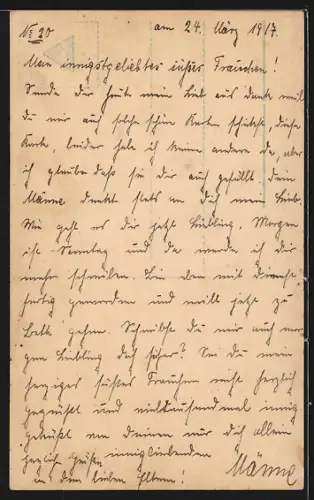 No 20 am 24. März 1917.
Mein innigstgeliebtes süßes Frauchen!
Sende dir heute mein Lieb aus Dank weil
du mir auch solche schöne Karten schickst, diese
Karte, leider habe ich keine andere da, aber
ich glaube daß sie dir auch gefällt dein
Männe denkt stets an dich mein Lieb.
Wie geht es dir jetzt Liebling. Morgen
ist Sonntag und da werde ich dir
mehr schreiben. Bin eben mit Dienst
fertig geworden und will jetzt zu
Bett gehen. Schreibst du mir auch mor
gen Liebling doch sicher? Sei du mein
herziges süßes Frauchen recht herzlich
gegrüßt und vieltausendmal innig
geküßt von deinem nur dich allein
innigliebenden
Männe
herzliche Grüße
an den lieben Eltern!